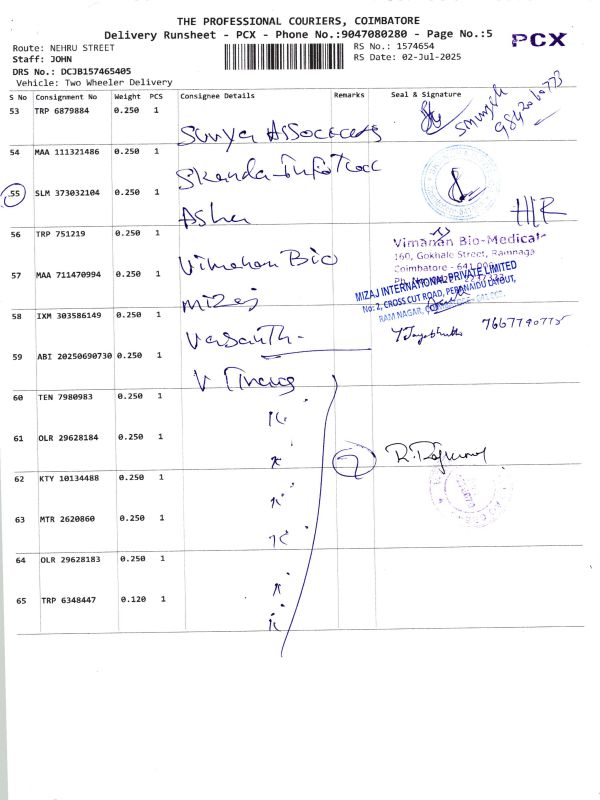 THE PROFESSIONAL COURIERS, COIMBATORE
Delivery Runsheet - PCX - Phone No.:9047080280 - Page No.:5
PCX
Route: NEHRU STREET
RS No.: 1574654
Staff: JOHN
RS Date: 02-Jul-2025
DRS No.: DCJB157465405
Vehicle: Two Wheeler Delivery
S No Consignment No Weight PCS Consignee Details Remarks Seal & Signature
53 TRP 6879884 0.250 1
9842060773
Surya Associates
54 MAA 111321486 0.250 1
Skanda Infotrac
55 SLM 373032104 0.250 1
Asha
H/R
56 TRP 751219 0.250 1
Vimanan Bio
Vimanan Bio-Medical
160, Gokhale Street, Ramnaga
Coimbatore - 641 009
57 MAA 711470994 0.250 1
Mizaj
MIZAJ INTERNATIONAL PRIVATE LIMITED
No: 2, CROSS CUT ROAD, PERANAIDU LAYOUT,
RAM NAGAR, COIMBATORE - 641 009.
58 IXM 303586149 0.250 1
Vasanth
7667790775
59 ABI 20250690730 0.250 1
60 TEN 7980983 0.250 1
61 OLR 29628184 0.250 1
7
62 KTY 10134488 0.250 1
63 MTR 2620860 0.250 1
64 OLR 29628183 0.250 1
65 TRP 6348447 0.120 1